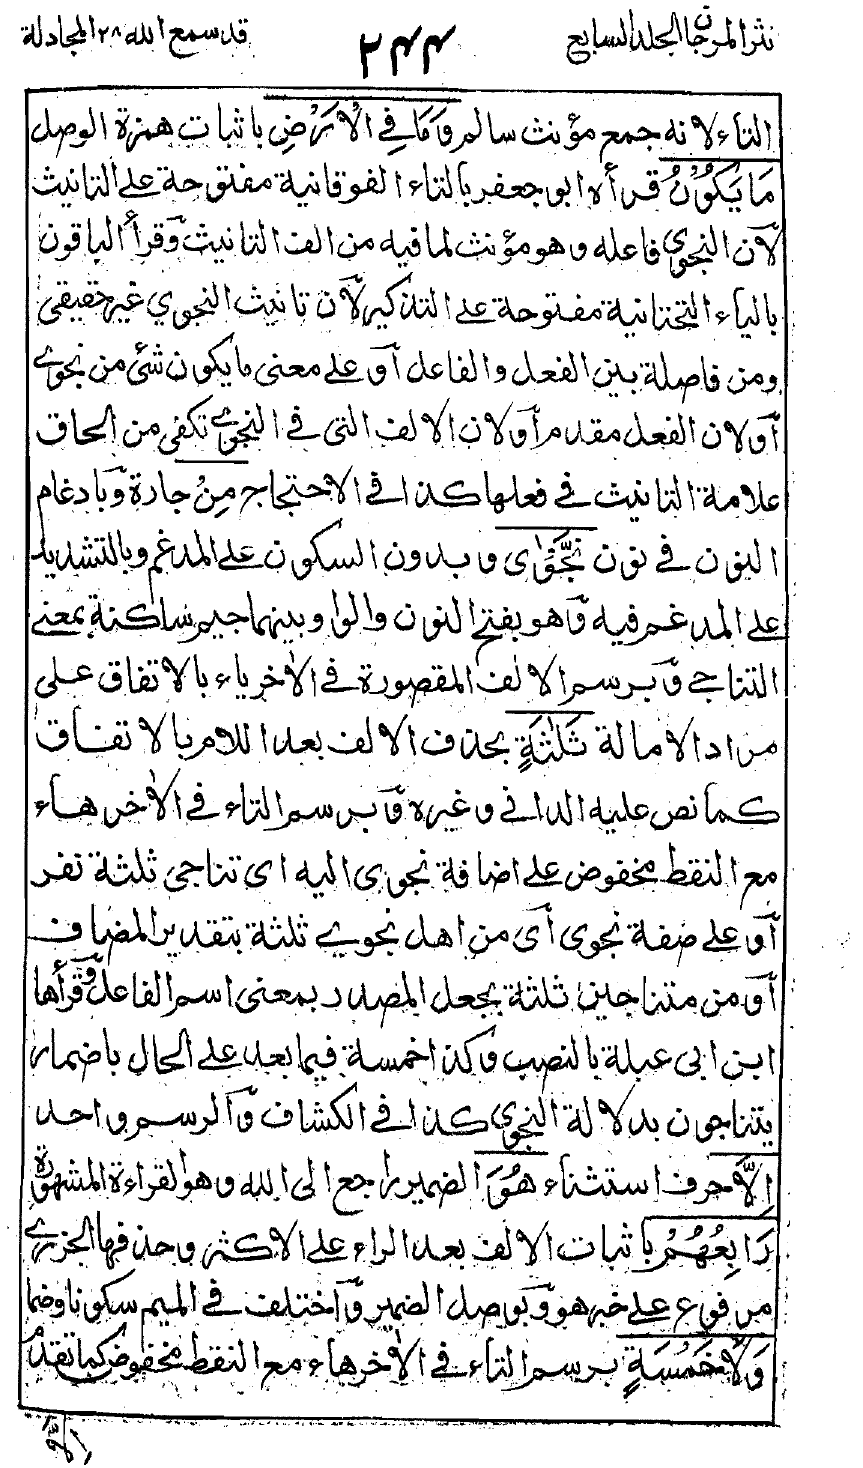 نثر المرجان الجلد السابع
٢٤٤
قد سمع الله ٢٨ المجادلة
التاء لانه جمع مؤنث سالم وَمَا فِي الْاَرْضِ باثبات همزة الوصل
مَا يَكُوْنُ قرأه ابو جعفر بالتاء الفوقانية مفتوحة على التانيث
لان النجوى فاعله وهو مؤنث لما فيه من الف التانيث وقرأ الباقون
بالياء التحتانية مفتوحة على التذكير لان تانيث النجوي غير حقيقي
ومن فاصلة بين الفعل والفاعل أو على معنى ما يكون شئ من نجوى
أو لان الفعل مقدم أو لان الالف التي في النجوى تكفي من الحاق
علامة التانيث في فعلها كذا في الاحتجاج مِنْ جارة وبادغام
النون في نون نَّجْوٰى وبدون السكون على المدغم وبالتشديد
على المدغم فيه وهو بفتح النون والواو وبينهما جيم ساكنة بمعنى
التناجي وبرسم الالف المقصورة في الاخر ياء بالاتفاق على
مراد الامالة ثَلٰثَةٍ بحذف الالف بعد اللام بالاتفاق
كما نص عليه الداني وغيره وبرسم التاء في الاخر هاء
مع النقط مخفوض على اضافة نجوى اليه اي تناجي ثلثة نفر
أو على صفة نجوى أي من اهل نجوي ثلثة بتقدير المضاف
أو من متناجين ثلثة بجعل المصدر بمعنى اسم الفاعل وقرأها
ابن ابي عبلة بالنصب وكذا خمسة فيما بعد على الحال باضمار
يتناجون بدلالة النجوى كذا في الكشاف والرسم واحد
اِلَّا حرف استثناء هُوَ الضمير راجع الى الله وهو القراءة المشهورة
رَابِعُهُمْ باثبات الالف بعد الراء على الاكثر وحذفها الجزري
مرفوع على خبر هو وبوصل الضمير واختلف في الميم سكونا وضما
وَلَا خَمْسَةٍ برسم التاء في الاخر هاء مع النقط مخفوض كما تقدم